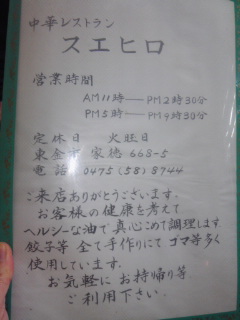 中華レストラン
スエヒロ
営業時間
AM11時 — PM2時30分
PM5時 — PM9時30分
定休日 火旺日
東金市 家徳 668-5
電話 0475(58)8944
ご来店ありがとうございます。
お客様の健康を考えて
ヘルシーな油で真心こめて調理します
餃子等 全て手作りにて ゴマ等多く
使用しています。
お気軽に お持帰り等
ご利用下さい.